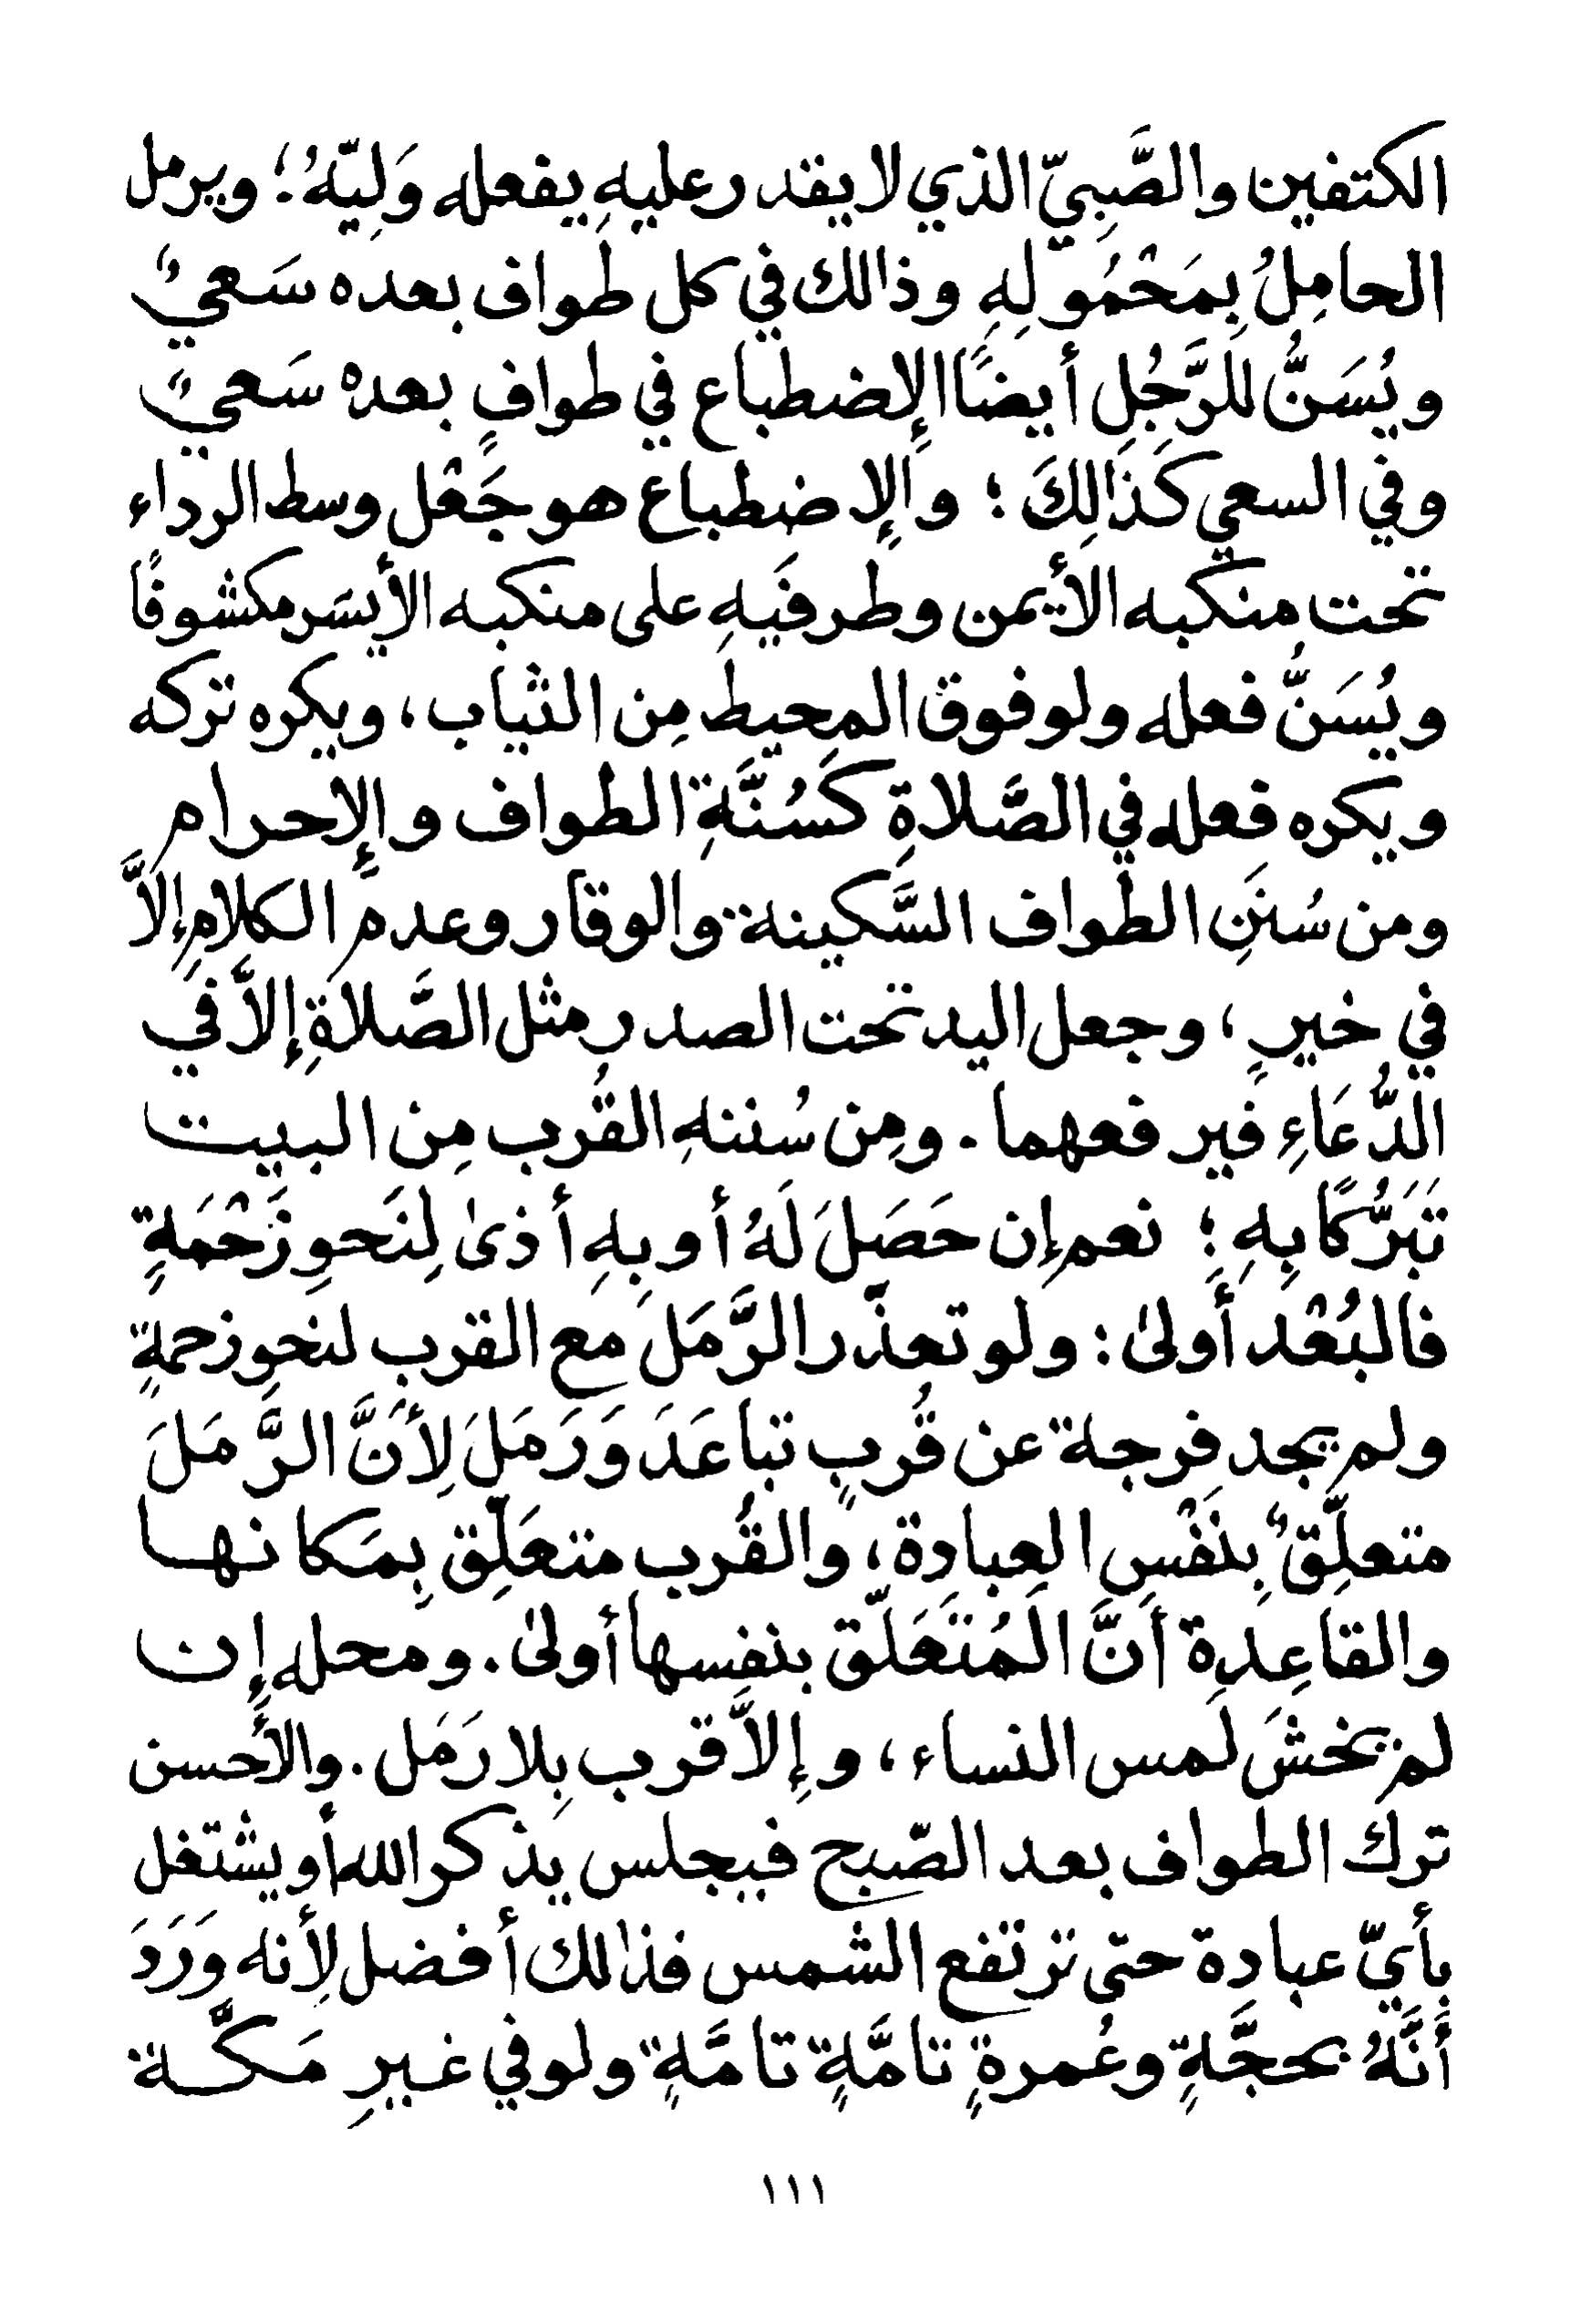 الكتفين والصَّبِيّ الذي لا يقدر عليهِ يفعله وَلِيّهُ؛ ويرمل
الحامِلُ بِمَحْمُولِهِ وذالك في كل طواف بعده سَعيٌ
ويُسَنُّ للرَّجُلِ أيضًا الإضطباع في طوافٍ بعده سَعيٌ
وفي السعي كَذَالِكَ؛ والإضطباع هو جَعْل وسط الرداء
تحت منكبه الأيمن وطرفَيهِ على منكبه الأيسَر مكشوفًا
ويُسَنُّ فعله ولو فوق المحيط مِن الثياب، ويكره تركه
ويكره فعله في الصَّلاةِ كَسُنَّةِ الطواف والإحرام
ومن سُنَنِ الطواف السَّكينة والوقار وعدم الكلامِ إلاَّ
في خيرٍ، وجعل اليد تحت الصدر مثل الصَّلاةِ إلاَّ في
الدُّعَاءِ فيرفعهما. ومِن سُننهِ القُرب مِن البيت
تَبَرُّكًا بِهِ؛ نعم إن حَصَلَ لَهُ أو بِهِ أذىٰ لِنَحوِ زَحْمَةٍ
فالبُعْد أَولىٰ: ولو تعذّر الرَّمَل مع القرب لنحو زحمةٍ
ولم يجد فرجة عن قُربٍ تباعَدَ وَرَمَلَ لِأَنَّ الرَّمَلَ
متعلِّقٌ بِنَفْسِ العِبادة، والقُرب متعَلِّق بِمَكانها
والقاعِدة أَنَّ المُتَعَلّق بنفسها أولىٰ. ومحله إن
لم يخشَ لَمس النساء، وإلاَّ قرب بِلا رَمَل. والأحسن
تركُ الطواف بعد الصّبح فيجلس يذكر الله أو يشتغل
بأيّ عبادة حتى ترتفع الشمس فذالك أفضل لِأنه وَرَدَ
أَنَّهُ بحجَّةٍ وعُمرةٍ تامَّةٍ تامَّةٍ ولو في غيرِ مَكَّة
١١١